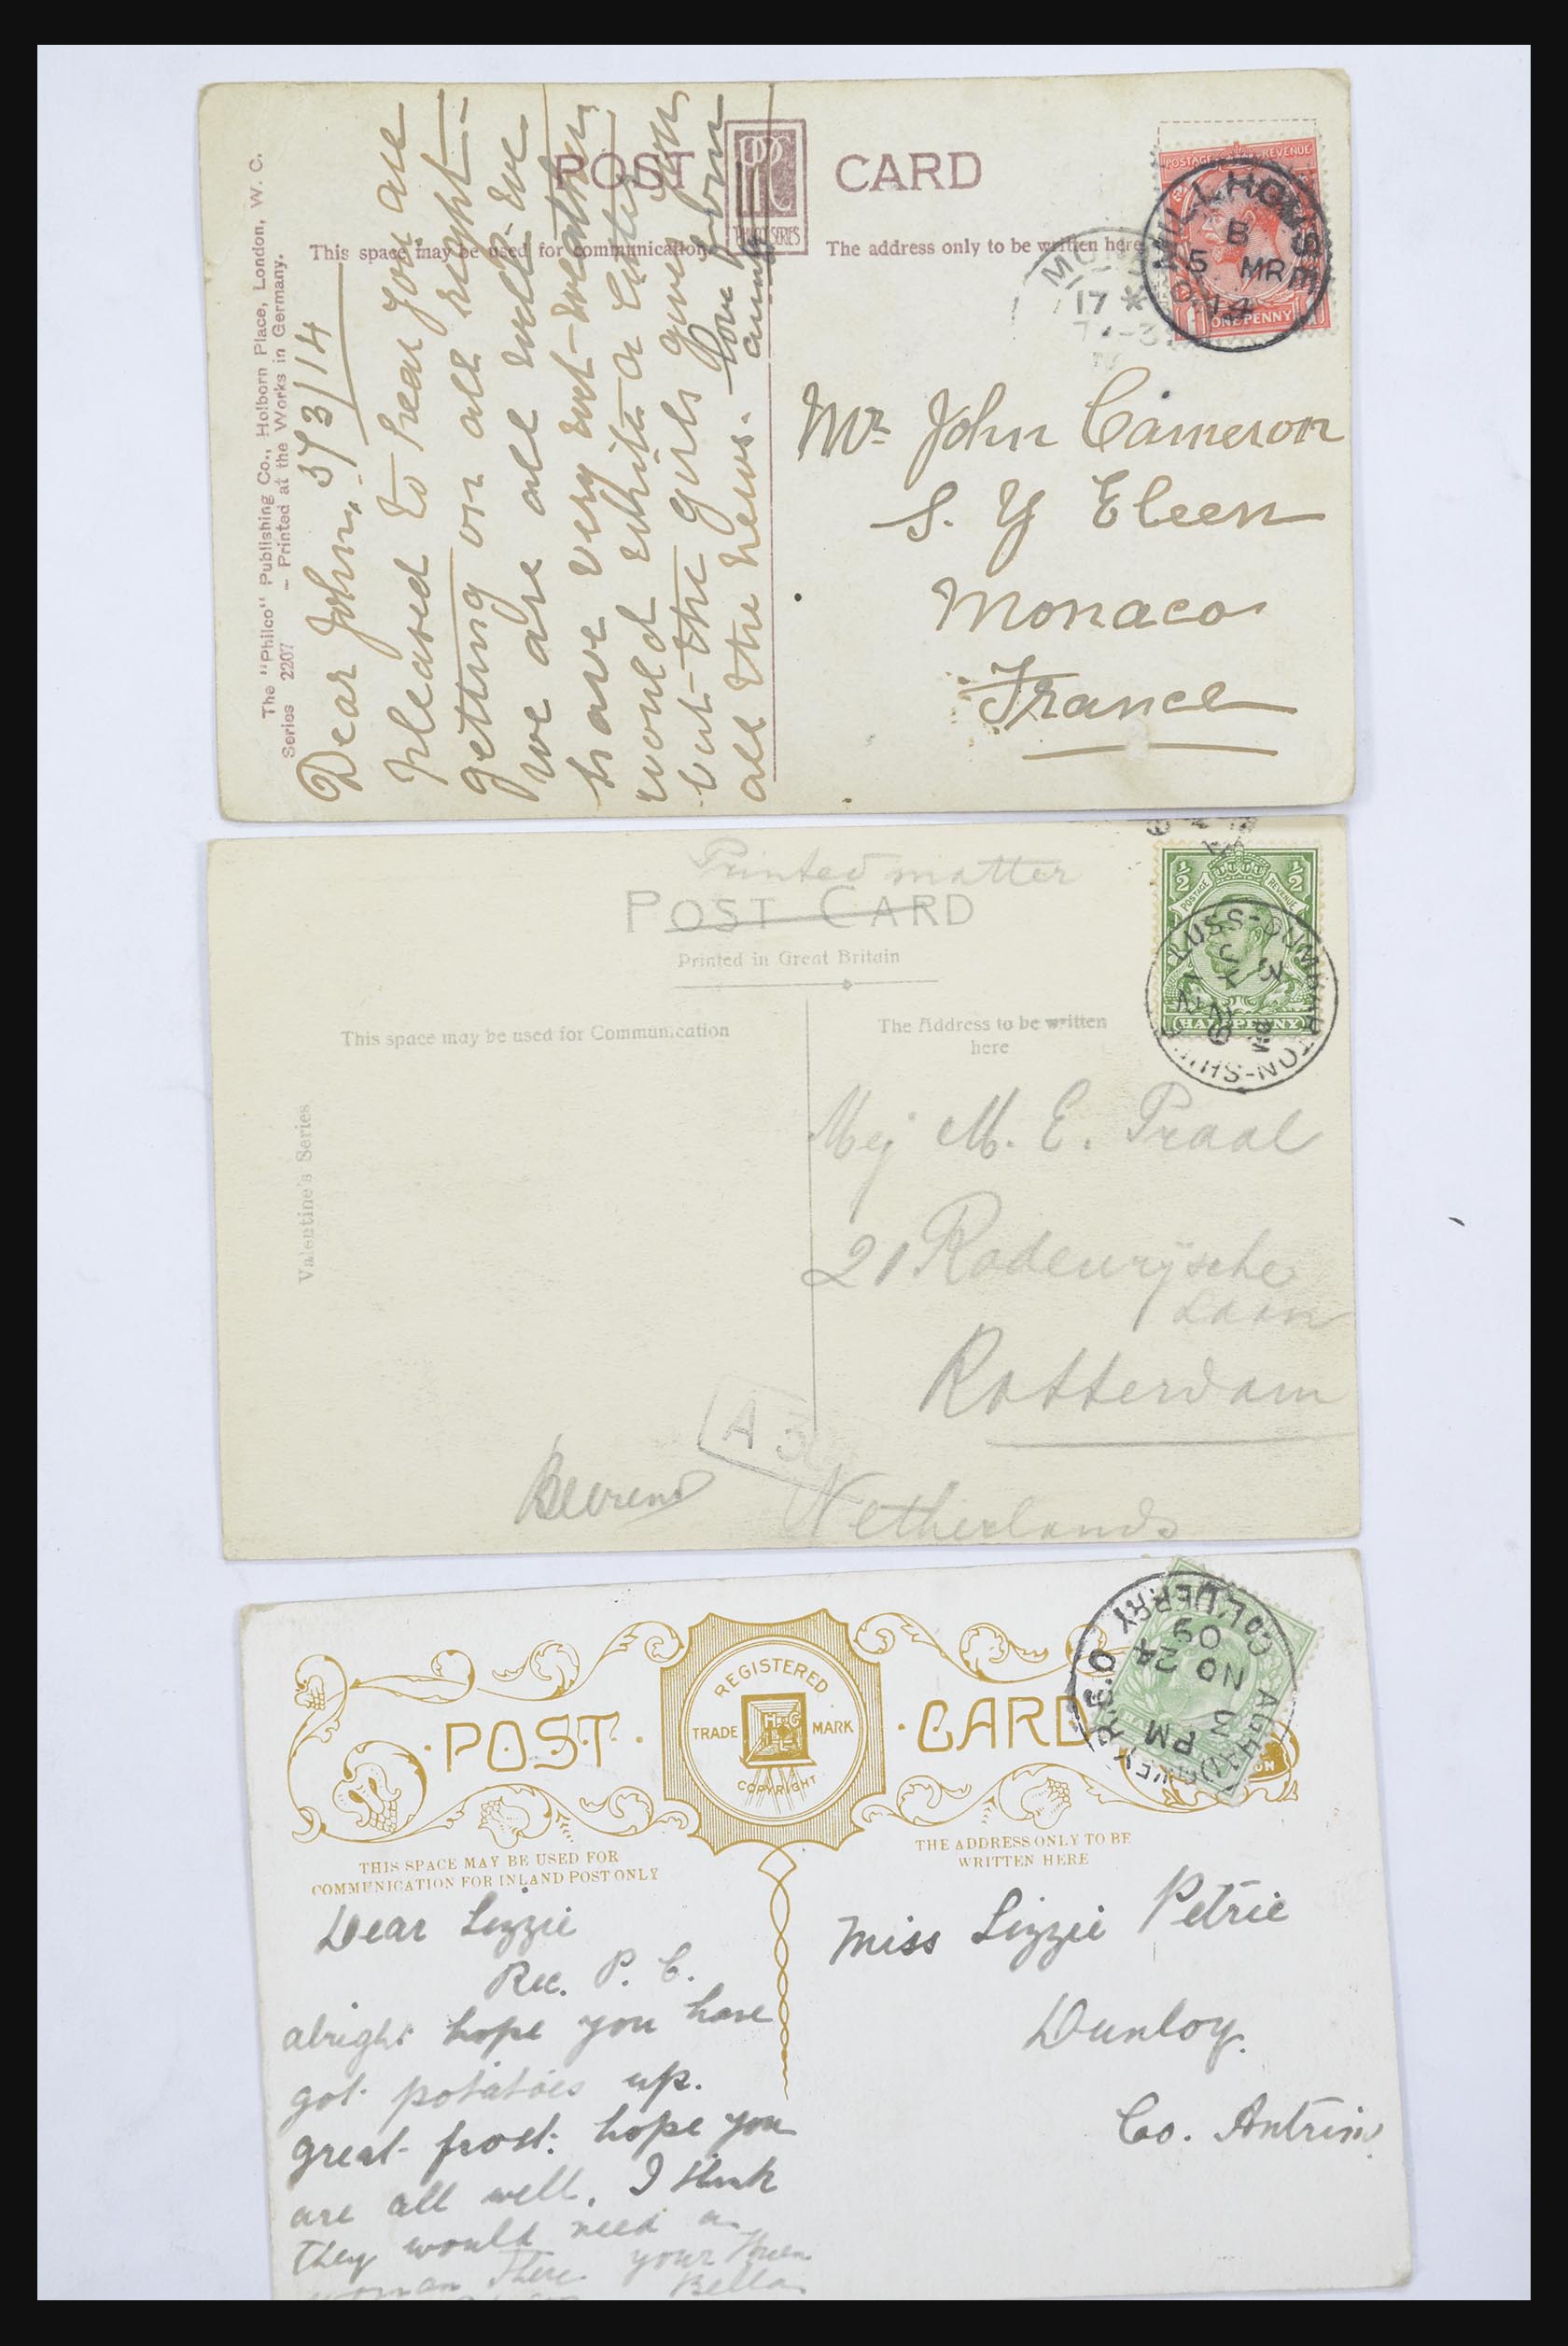 The "Philco" Publishing Co., Holborn Place, London, W. C.
Series 2207 – Printed at the Works in Germany.
POST CARD
PHILCO SERIES
This space may be used for communication.
The address only to be written here
POSTAGE REVENUE
ONE PENNY
MILLHOUSE
B
5 MR
14
MON
17 *
Dear John. 5/3/14
pleased to hear you are
getting on all right
we are all well we
have very wet weather
would write a letter
but the girls gives you
all the news. love from
Mr John Cameron
S. Y Eleen
Monaco
France
Printed matter
POST CARD
Printed in Great Britain
This space may be used for Communication
The Address to be written
here
Valentine's Series
½ ½
POSTAGE REVENUE
HALFPENNY
LUSS-DUMBARTON-SHIRE
Mej M. E. Praal
21 Rodenrijsche
Laan
Rotterdam
Netherlands
A3
POST CARD
REGISTERED
TRADE MARK
COPYRIGHT
AGHADOWEY R.S.O
CO. L'DERRY
3 PM
NO 24
09
THIS SPACE MAY BE USED FOR
COMMUNICATION FOR INLAND POST ONLY
THE ADDRESS ONLY TO BE
WRITTEN HERE
Dear Lizzie
Rec. P. C.
alright hope you have
got potatoes up.
great frost. hope you
are all well. I think
they would need a
woman there your
Bella
Miss Lizzie Petrie
Dunloy.
Co. Antrim